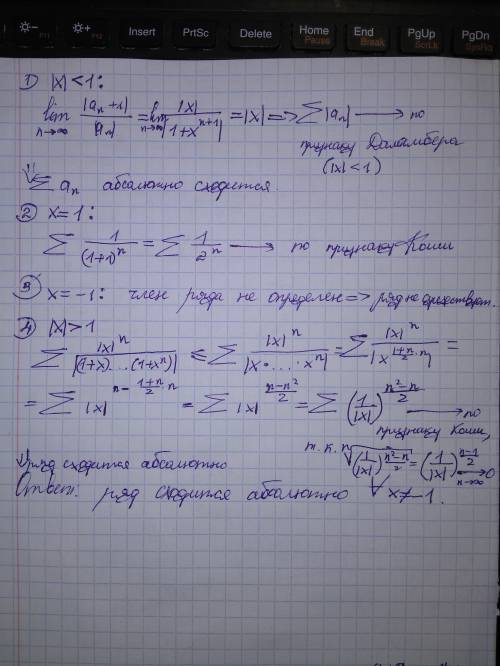 F11 F12 Insert PrtSc Delete Home Pause End Break PgUp ScrLk PgDn SysRq
1) |x| < 1:
lim n→∞ |a_n+1| / |a_n| = lim n→∞ |x| / |1+x^{n+1}| = |x| => ∑|a_n| → по
признаку Даламбера
(|x| < 1)
⇓ ∑ a_n абсолютно сходится.
2) x = 1:
∑ 1/(1+1)^n = ∑ 1/2^n → по признаку Коши
3) x = -1: член ряда не определен => ряд не существует.
4) |x| > 1
∑ |x|^n / |(1+x)...(1+x^n)| ≤ ∑ |x|^n / |x·...·x^n| = ∑ |x|^n / |x^{(1+n)/2·n}| =
= ∑ |x|^{n - (1+n)/2·n} = ∑ |x|^{(n-n²)/2} = ∑ (1/|x|)^{(n²-n)/2} → по
признаку Коши,
т.к. ⁿ√((1/|x|)^{(n²-n)/2}) = (1/|x|)^{(n-1)/2} → 0 n→∞
⇓ ряд сходится абсолютно
Ответ: ряд сходится абсолютно ∀ x ≠ -1.